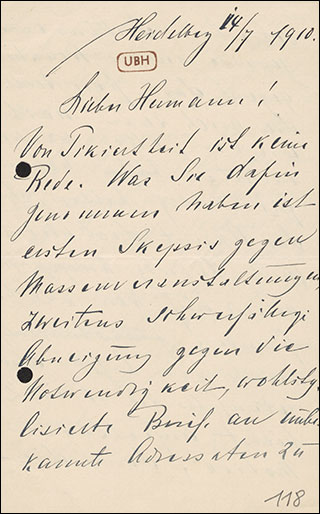 Heidelberg 14/7 1910.
UBH
Lieber Hermann!
Von Pikiertheit ist keine
Rede. Was Sie dafür
genommen haben ist
erstens Skepsis gegen
Massenveranstaltungen
zweitens schwerfällige
Abneigung gegen die
Notwendigkeit, wohlsty-
lisierte Briefe an unbe-
kannte Adressaten zu
118